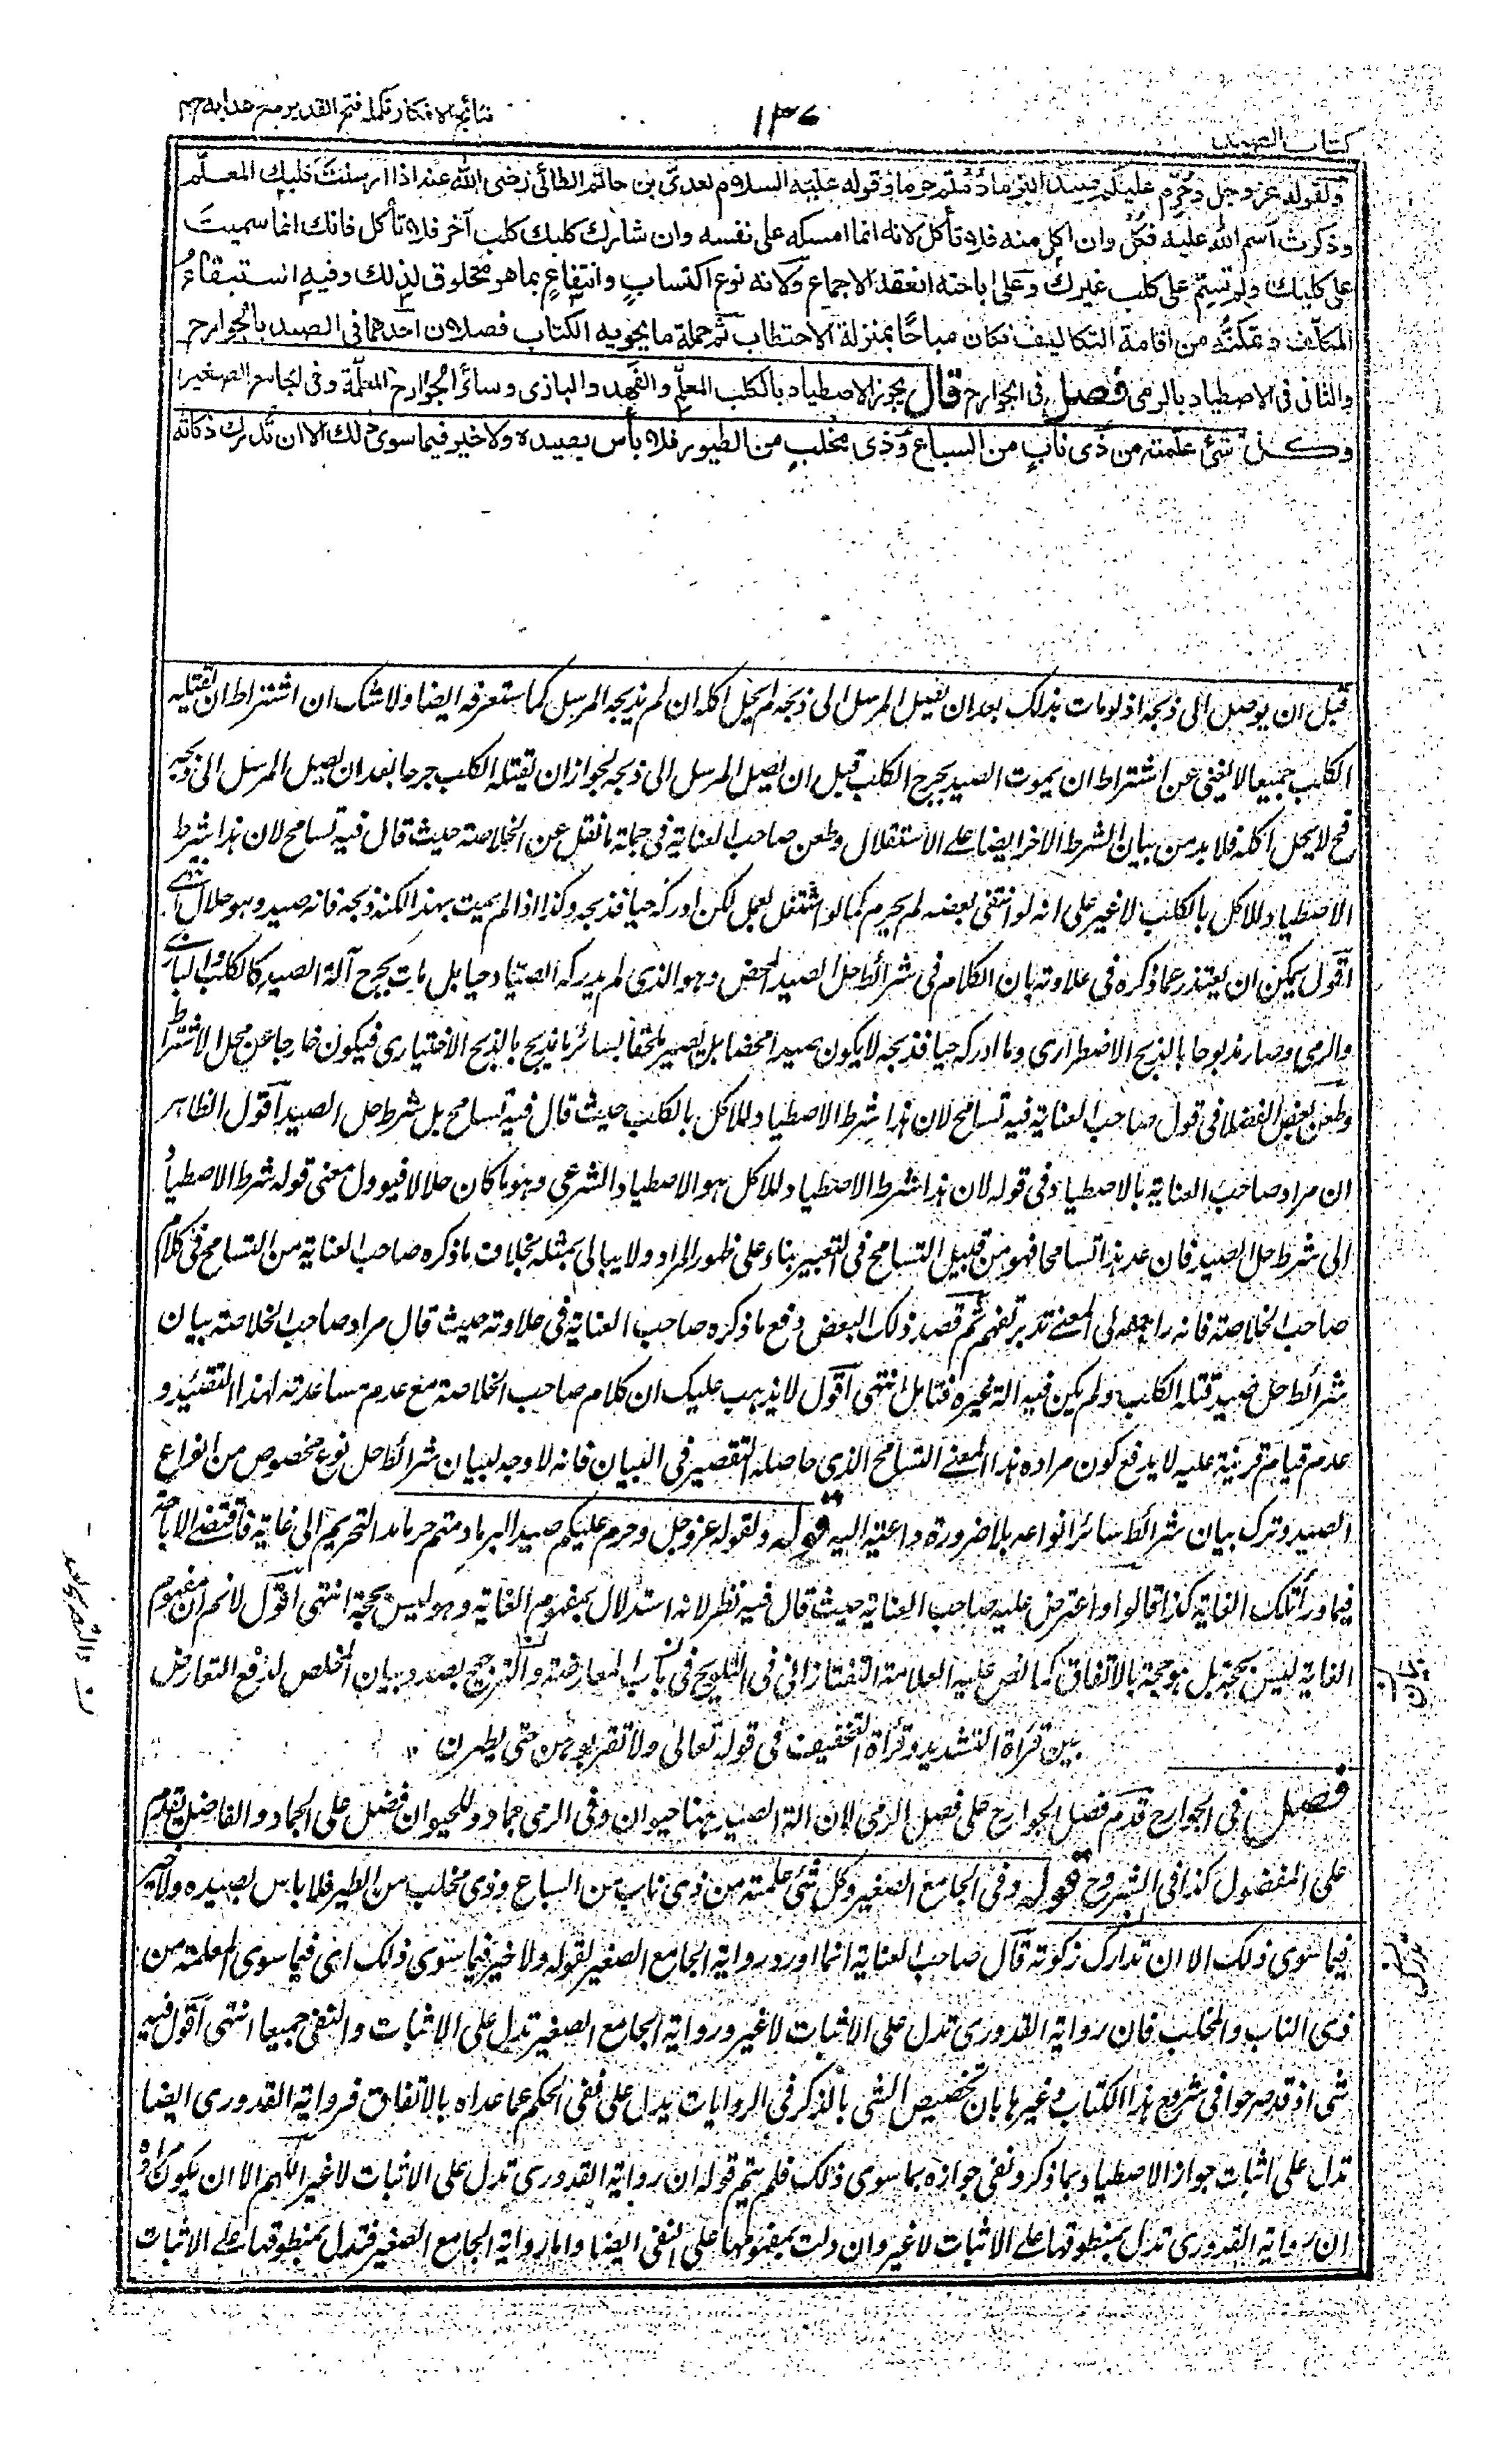 كتاب الصيد
١٣٧
نتائج الافكار تكملة فتح القدير مع هدايه ج٨
ولقوله عز وجل وحُرّم عليكم صيد البر ما دمتم حرما وقوله عليه السلام لعدي بن حاتم الطائي رضي الله عنه اذا ارسلت كلبك المعلّم
وذكرت اسم الله عليه فكُل وان اكل منه فلا تأكل لانه انما امسكه على نفسه وان شارك كلبك كلب آخر فلا تأكل فانك انما سميتَ
على كلبك ولم تسمّ على كلب غيرك وعلى اباحته انعقد الاجماع ولانه نوع اكتسابٍ وانتفاعٍ بما هو مخلوق لذلك وفيه استبقاءُ
المكلّف وتمكنُّه من اقامة التكاليف فكان مباحًا بمنزلة الاحتطاب ثم جملة ما يحويه الكتاب فصلان احدهما في الصيد بالجوارح
والثاني في الاصطياد بالرمي فصل في الجوارح قال يجوز الاصطياد بالكلب المعلّم والفهد والبازى وسائر الجوارح المعلّمة وفي الجامع الصغير
وكل شئ علّمته من ذي نابٍ من السباع وذى مخلبٍ من الطيور فلا بأس بصيده ولا خير فيما سوى ذلك الا ان تدرك ذكاته
قبل ان يوصل الى ذبحه اذ لو مات بذلك بعد ان يصل المرسل الى ذبحه لم يحل اكله ان لم يذبحه المرسل كما ستعرفه ايضا ولا شك ان اشتراط ان يقتله
الكلب جميعا لا يغنى عن اشتراط ان يموت الصيد بجرح الكلب قبل ان يصل المرسل الى ذبحه لجواز ان يقتله الكلب جرحا بعد ان يصل المرسل الى ذبحه
فح لا يحل اكله فلا بد من بيان الشرط الاخر ايضا على الاستقلال وطعن صاحب العناية في جملة ما نقل عن الخلاصة حيث قال فيه تسامح لان هذا شرط
الاصطياد للاكل بالكلب لا غير على انه لو انتفى بعضه لم يحرم كما لو اشتغل بعمل لكن ادركه حيا فذبحه وكذا اذا لم يمت بهذا لكنه ذبحه فانه صيد وهو حلال انتهى
اقول يمكن ان يعتذر عما ذكره في علاوته بان الكلام في شرائط حل الصيد المحض وهو الذى لم يدركه الصياد حيا بل مات بجرح آلة الصيد كالكلب والبازى
والرمى وصار مذبوحا بالذبح الاضطرارى وما ادركه حيا فذبحه لا يكون صيدا محضا بل يصير ملحقا بسائر ما يذبح بالذبح الاختيارى فيكون خارجا عن محل الاشتراط
وطعن بعض الفضلا في قول صاحب العناية فيه تسامح لان هذا شرط الاصطياد للاكل بالكلب حيث قال فيه تسامح بل شرط حل الصيد اقول الظاهر
ان مراد صاحب العناية بالاصطياد في قوله لان هذا شرط الاصطياد للاكل هو الاصطياد الشرعي وهو ما كان حلالا فيؤول معنى قوله شرط الاصطياد
الى شرط حل الصيد فان عد هذا تسامحا فهو من قبيل التسامح في التعبير بناء على ظهور المراد ولا يبالى بمثله بخلاف ما ذكره صاحب العناية من التسامح في كلام
صاحب الخلاصة فانه راجع الى المعنى تدبر تفهم ثم قصد ذلك البعض دفع ما ذكره صاحب العناية في علاوته حيث قال مراد صاحب الخلاصة بيان
شرائط حل صيد قتله الكلب ولم يكن فيه آلة غيره فتأمل انتهى اقول لا يذهب عليك ان كلام صاحب الخلاصة مع عدم مساعدته لهذا التقييد و
عدم قيام قرينة عليه لا يدفع كون مراده هذا المعنى التسامح الذى حاصله التقصير في البيان فانه لا وجه لبيان شرائط حل نوع مخصوص من انواع
الصيد وترك بيان شرائط سائر انواعه بلا ضرورة داعية اليه قوله ولقوله عز وجل وحرم عليكم صيد البر ما دمتم حرما مد التحريم الى غاية فاقتضى الاباحة
فيما وراء تلك الغاية كذا قالوا واعترض عليه صاحب العناية حيث قال فيه نظر لانه استدلال بمفهوم الغاية وهو ليس بحجة انتهى اقول لا نم ان مفهوم
الغاية ليس بحجة بل هو حجة بالاتفاق كما نص عليه العلامة التفتازاني في التلويح في باب المعارضة والترجيح بصدد بيان المخلص لدفع التعارض
بين قراة التشديد وقراة التخفيف في قوله تعالى ولا تقربوهن حتى يطهرن
فصل في الجوارح قدم فصل الجوارح على فصل الرمى لان الة الصيد ههنا حيوان وفي الرمى جماد وللحيوان فضل على الجماد والفاضل يقدم
على المفضول كذا في الشروح قوله وفي الجامع الصغير وكل شئ علمته من ذى ناب من السباع وذى مخلب من الطير فلا باس بصيده ولا خير
فيما سوى ذلك الا ان تدارك زكوته قال صاحب العناية انما اورد رواية الجامع الصغير لقوله ولا خير فيما سوى ذلك اى فيما سوى المعلمة من
ذى الناب والمخلب فان رواية القدورى تدل على الاثبات لا غير ورواية الجامع الصغير تدل على الاثبات والنفى جميعا انتهى اقول فيه
شئ اذ قد صرحوا في شروح هذا الكتاب وغيرها بان تخصيص الشى بالذكر في الروايات يدل على نفى الحكم عما عداه بالاتفاق فرواية القدورى ايضا
تدل على اثبات جواز الاصطياد بما ذكر ونفى جوازه بما سوى ذلك فلم يتم قوله ان رواية القدورى تدل على الاثبات لا غير اللهم الا ان يكون مراده
ان رواية القدورى تدل بمنطوقها على الاثبات لا غير وان دلت بمفهومها على النفى ايضا واما رواية الجامع الصغير فتدل بمنطوقها على الاثبات